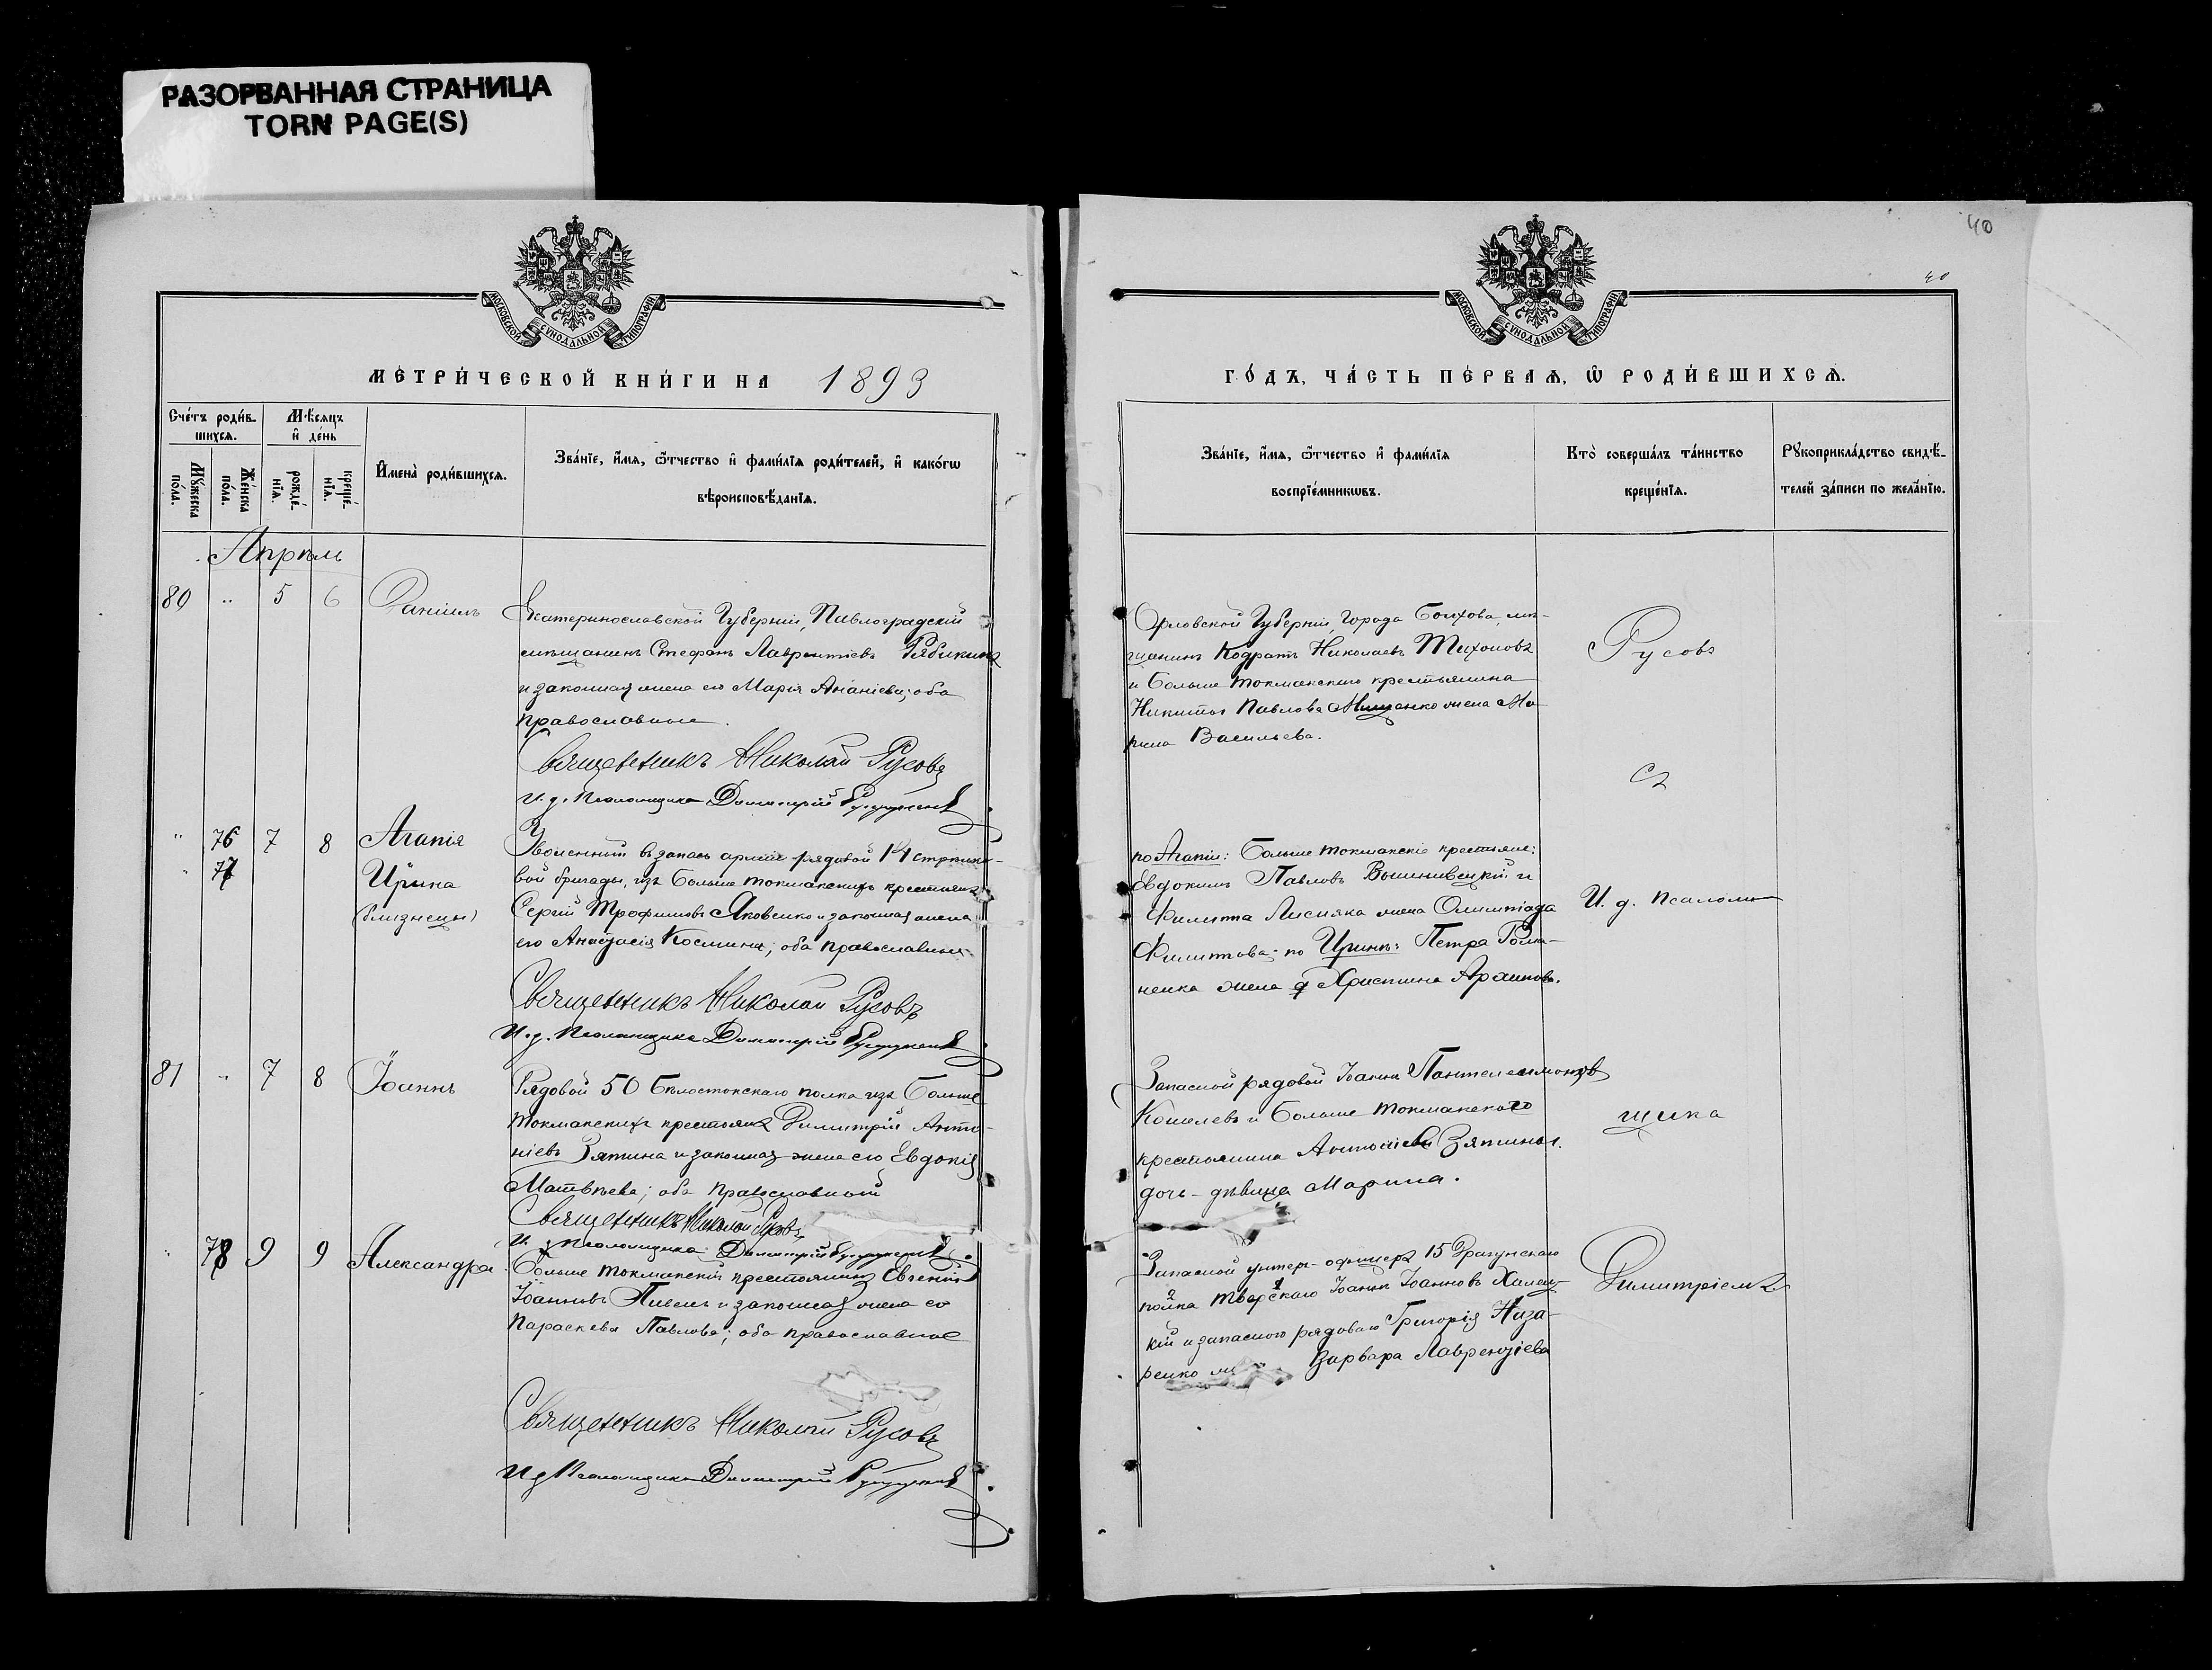 РАЗОРВАННАЯ СТРАНИЦА
TORN PAGE(S)
МОСКОВСКОЙ СѴНОДАЛЬНОЙ ТИПОГРАФІИ
МЕТРИ́ЧЕСКОЙ КНИ́ГИ НА 1893
Сче́тъ роди́в-
шихсѧ.
Мѣ́сяцъ
и҆ де́нь
Мꙋ́жеска
по́ла.
Же́нска
по́ла.
рожде́-
нїѧ.
креще́-
нїѧ.
И҆мена̀ роди́вшихсѧ.
Зва́нїе, и҆́мѧ, ѻ҆́тчество и҆ фами́лїѧ роди́телей, и҆ како́гѡ
вѣроисповѣ́данїѧ.
Апрѣль
80 " 5 6 Даніилъ
Екатеринославской Губерніи, Павлоградскій
мѣщанинъ Стефанъ Лаврентіевъ Рябикинъ
и законная жена его Марія Ананіева; оба
православные.
Священникъ Николай Русовъ
И. д. Псаломщика Димитрій
" 76 7 8 Агапія
77 Ирина
(близнецы)
Уволенный въ запасъ арміи рядовой 14 стрѣлко-
вой бригады, изъ Больше Токмакскихъ крестьянъ
Сергій Трофимовъ Яковенко и законная жена
его Анастасія Космина; оба православные
Священникъ Николай Русовъ
И. д. Псаломщика Димитрій
81 " 7 8 Іоаннъ
Рядовой 50 Бѣлостокскаго полка изъ Больше
Токмакскихъ крестьянъ Димитрій Анто-
ніевъ Зятина и законная жена его Евдокія
Матвѣева; оба православные
Священникъ Николай Русовъ
И. д. Псаломщика Димитрій
" 78 9 9 Александра
Больше Токмакскій крестьянинъ Евгеній
Іоанновъ Пивень и законная жена его
Параскева Павлова; оба православные
Священникъ Николай Русовъ
И д Псаломщика Димитрій
40
40
МОСКОВСКОЙ СѴНОДАЛЬНОЙ ТИПОГРАФІИ
ГО́ДЪ, ЧА́СТЬ ПЕ́РВАѦ, Ѡ҆ РОДИ́ВШИХСѦ.
Зва́нїе, и҆́мѧ, ѻ҆́тчество и҆ фами́лїѧ
воспрїе́мникѡвъ.
Кто̀ соверша́лъ та́инство
креще́нїѧ.
Рꙋкоприкла́дство свидѣ́-
телей за́писи по жела́нїю.
Орловской Губерніи Города Болхова мѣ-
щанинъ Кодратъ Николаевъ Тихоновъ
и Больше Токмакскаго крестьянина
Никиты Павлова Мищенко жена Ма-
рина Васильева.
Русовъ
съ
по Агапіи: Больше Токмакскіе крестьяне:
Евдокимъ Павловъ Вышнивецкій и
Филиппа Лисняка жена Олимпіада
Филиппова; по Иринѣ: Петра Рома-
ненка жена Христина Архипова.
И. д. Псалом-
Запасной рядовой Іоаннъ Пантелеимоновъ
Кошелевъ и Больше Токмакскаго
крестьянина Антонія Зятины
дочь - дѣвица Марина.
щика
Запасной унтеръ-офицеръ 15 Драгунскаго
полка Тверскаго Іоаннъ Іоанновъ
кій и запаснаго рядоваго Григорія Наза-
ренко Варвара Лаврентіева
Димитріемъ